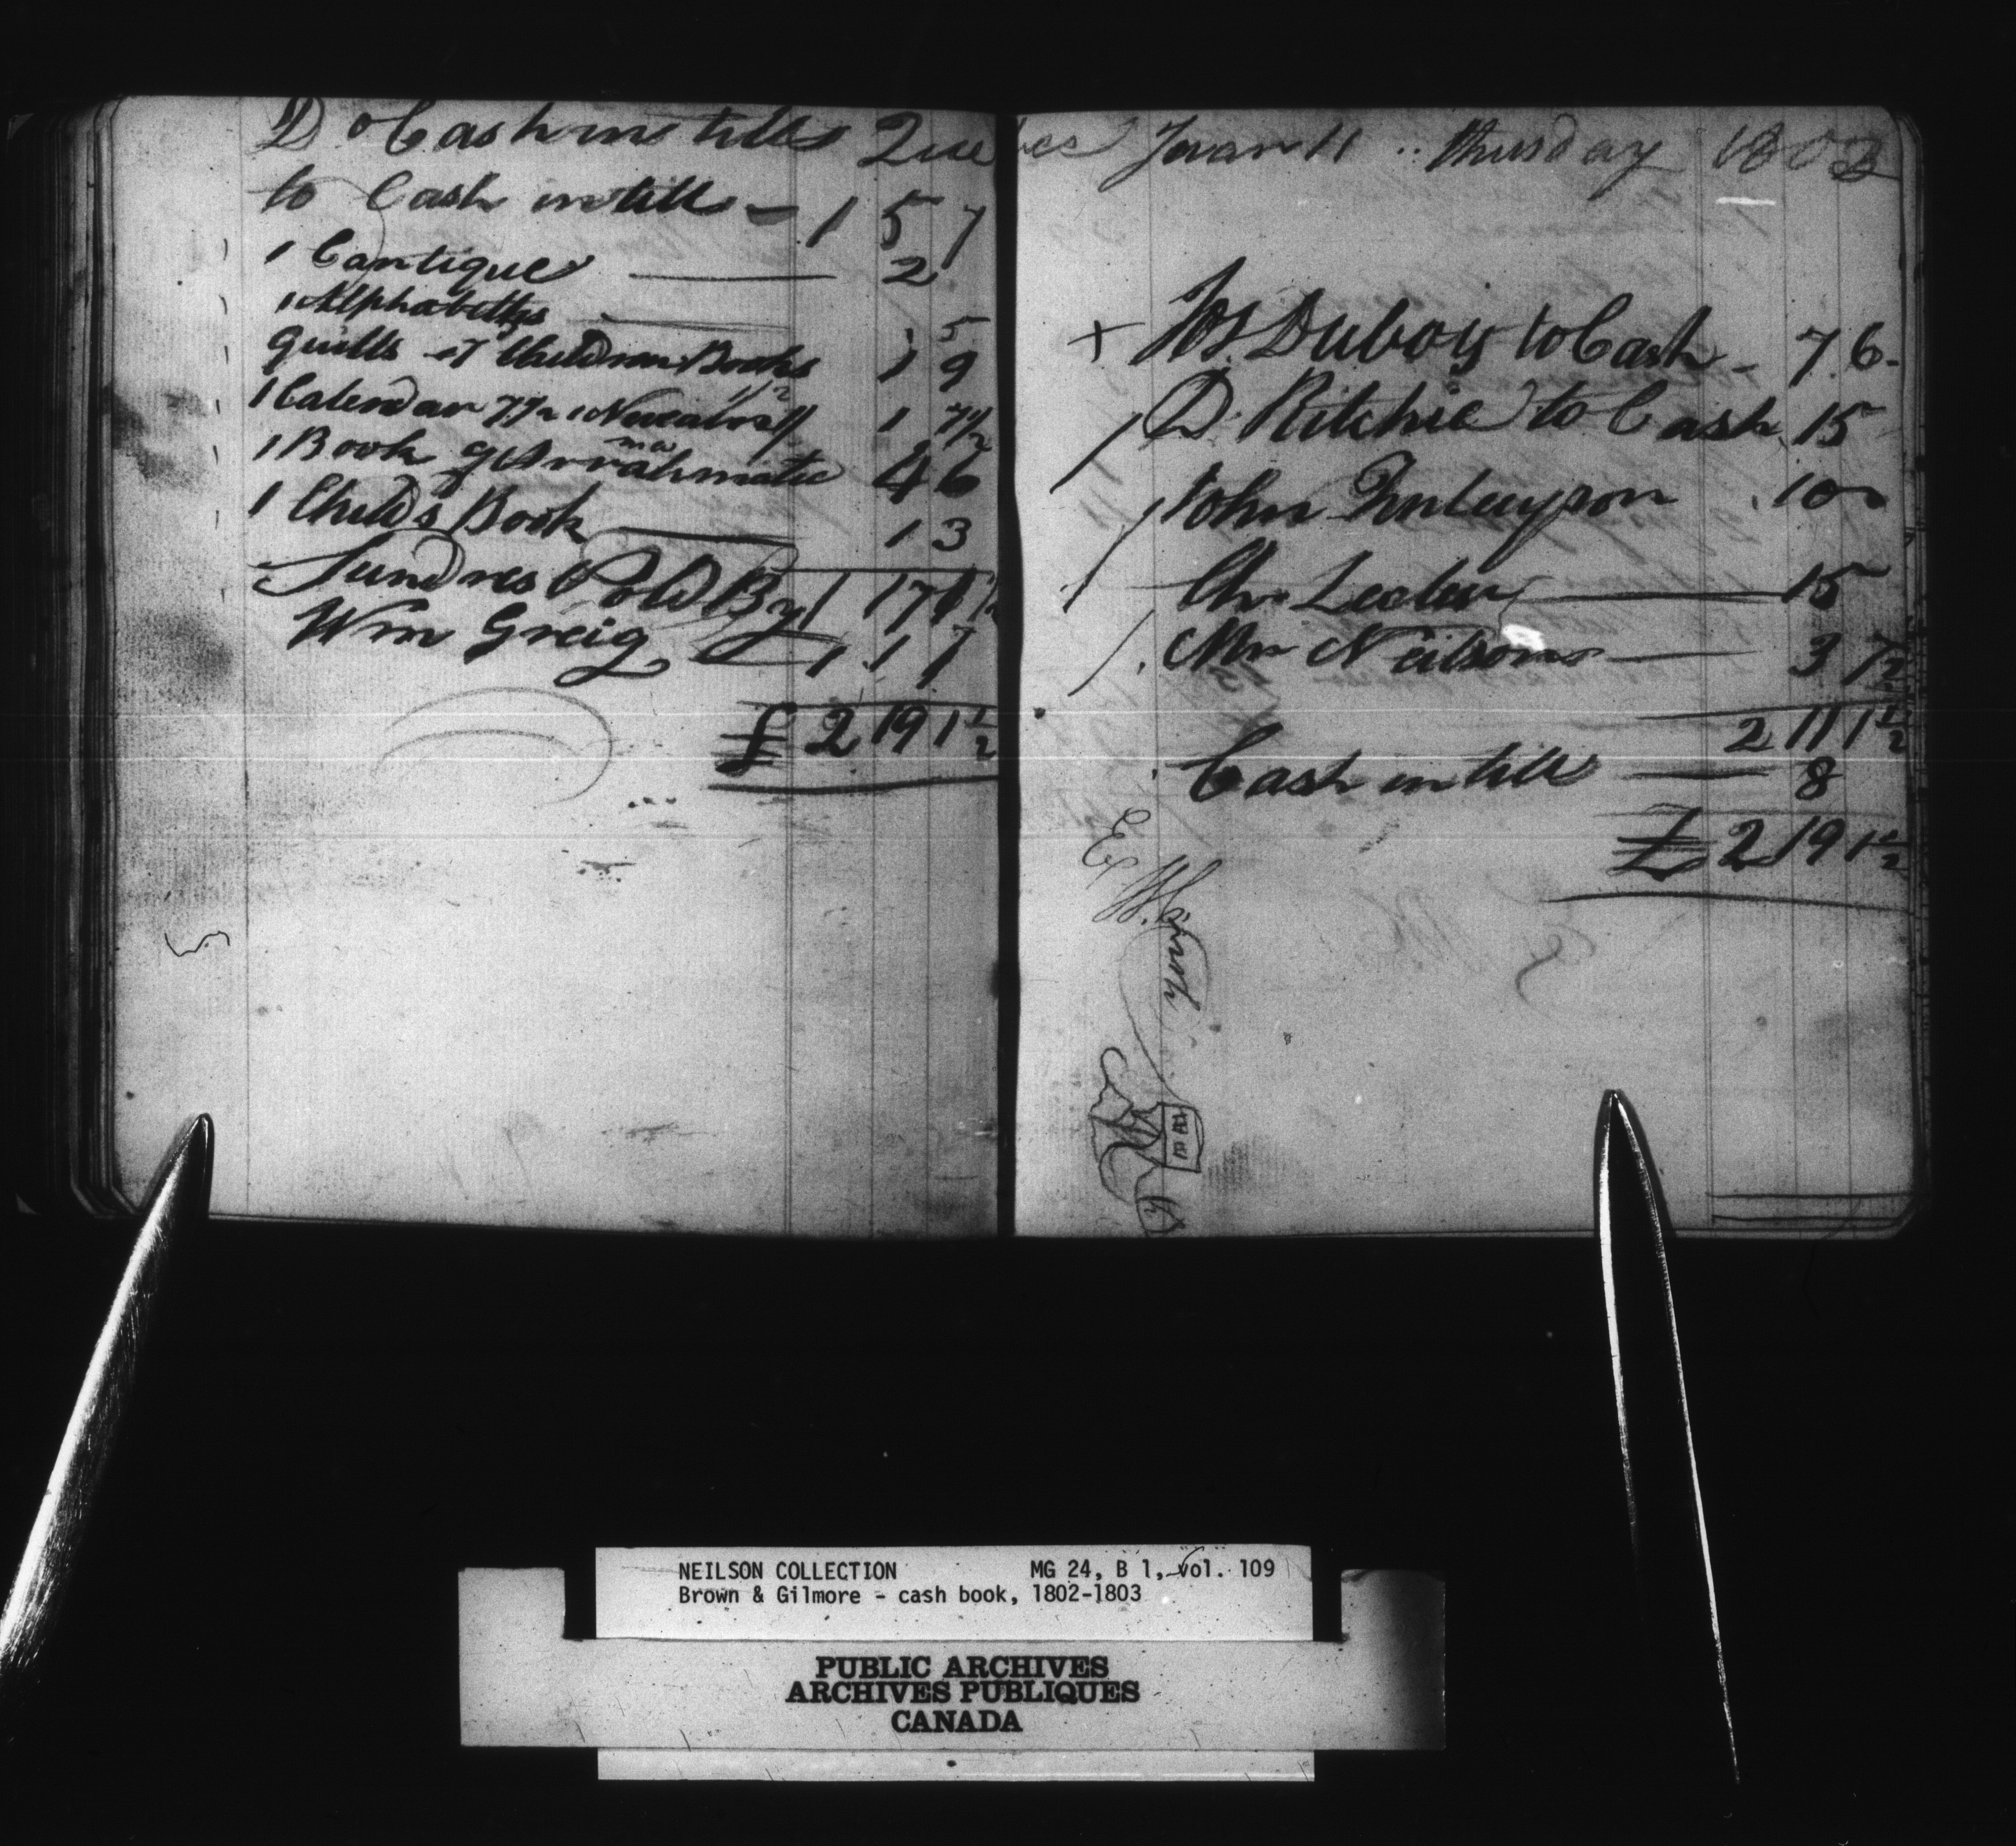 D o Cash in till Quebec Janar 11 .. thusday 1803
to Cash in till - 1 5 7
1 Cantique 2
1 Alphabetts 5
quills & Children Books 1 9
1 Calendar 7½ 1 1 7½
1 Book of Arrahmatic 4 6
1 Childs Book 1 3
Sundres Sold By 1 17 1½
Wm Greig 1 1 7
£ 2 19 1½
+ Jos. Duboy to Cash - 7 6
D. Ritchie to Cash 15
John Finlayson 10
Chr. Lecler 15
Mr Neilson 3 7½
2 11 1½
Cash in till 8
£ 2 19 1½
NEILSON COLLECTION MG 24, B 1, vol. 109
Brown & Gilmore - cash book, 1802-1803
PUBLIC ARCHIVES
ARCHIVES PUBLIQUES
CANADA